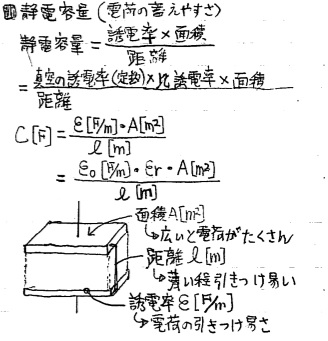 回静電容量(電荷の蓄えやすさ)
静電容量=誘電率×面積
距離
=真空の誘電率(定数)×比誘電率×面積
距離
C[F]=ε[F/m]・A[m²]
l[m]
=ε₀[F/m]・εr・A[m²]
l[m]
面積A[m²]
↳広いと電荷がたくさん
距離l[m]
↳薄い程引きつけ易い
誘電率ε[F/m]
↳電荷の引きつけ易さ